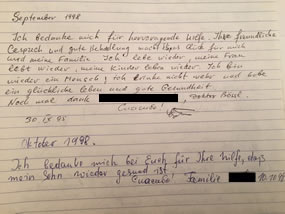 September 1998
Ich bedanke mich für hervorragende Hilfe. Ihre freundliche
Gespräch und gute Behandlung macht Glück für mich
und meine Familie. Ich lebe wieder, meine Frau
lebt wieder, meine Kinder leben wieder. Ich bin
wieder ein Mensch, ich trinke nicht mehr und habe
ein glückliche leben und gute Gesundheit
Noch mal dank Doktor
30. IX 98
Oktober 1998.
Ich bedanke mich bei Euch für Ihre hilfe, dass
mein Sohn wieder gesund ist
Familie 10.10.98